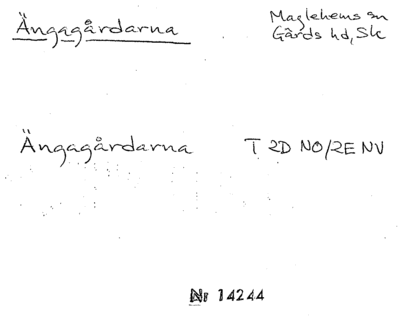 Ängagårdarna
Maglehems sn
Gärds hd, Sk
Ängagårdarna T 2D NO/2E NV
Nr 14244